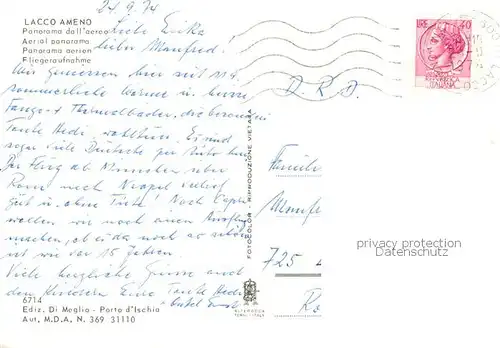 24.9.74
LACCO AMENO
Panorama dall'aereo
Aerial panorama
Panorama aerien
Fliegeraufnahme
Liebe Erika
Lieber Manfred!
Wir geniessen hier seit 11.9.
sommerliche Wärme u. heisse
Fango- + Thermalbäder, die besonders
Tante Hedi wohltun. Es sind
sogar viele Deutsche per Auto hier
Der Flug ab München über
Rom nach Neapel verlief
gut u. "ohne Türke"! Nach Capri
wollen wir noch einen Ausflug
machen, ob es da noch so schön
ist wie vor 15 Jahren.
Viele herzliche Grüsse auch
den Kindern Eure Tante Hedi
Onkel
6714
Ediz. Di Meglio - Porto d'Ischia
Aut. M.D.A. N. 369 31110
FOTOCOLOR - RIPRODUZIONE VIETATA
LIRE 40
REPUBBLICA
ITALIANA
D.R.D.
Famili
Manf
725
privacy protection
Datenschutz